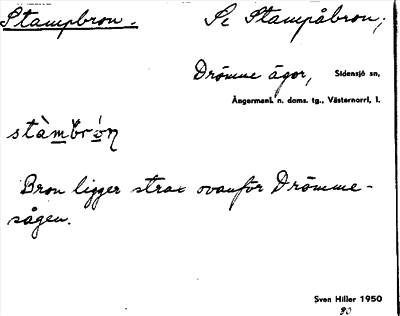 Stampbron. Se Stampåbron,
Drömme ägor, Sidensjö sn,
Ångermanl. n. doms. tg., Västernorrl. l.
stàmbrón
Bron ligger strax ovanför Drömme-
sågen.
Sven Hiller 1950
90